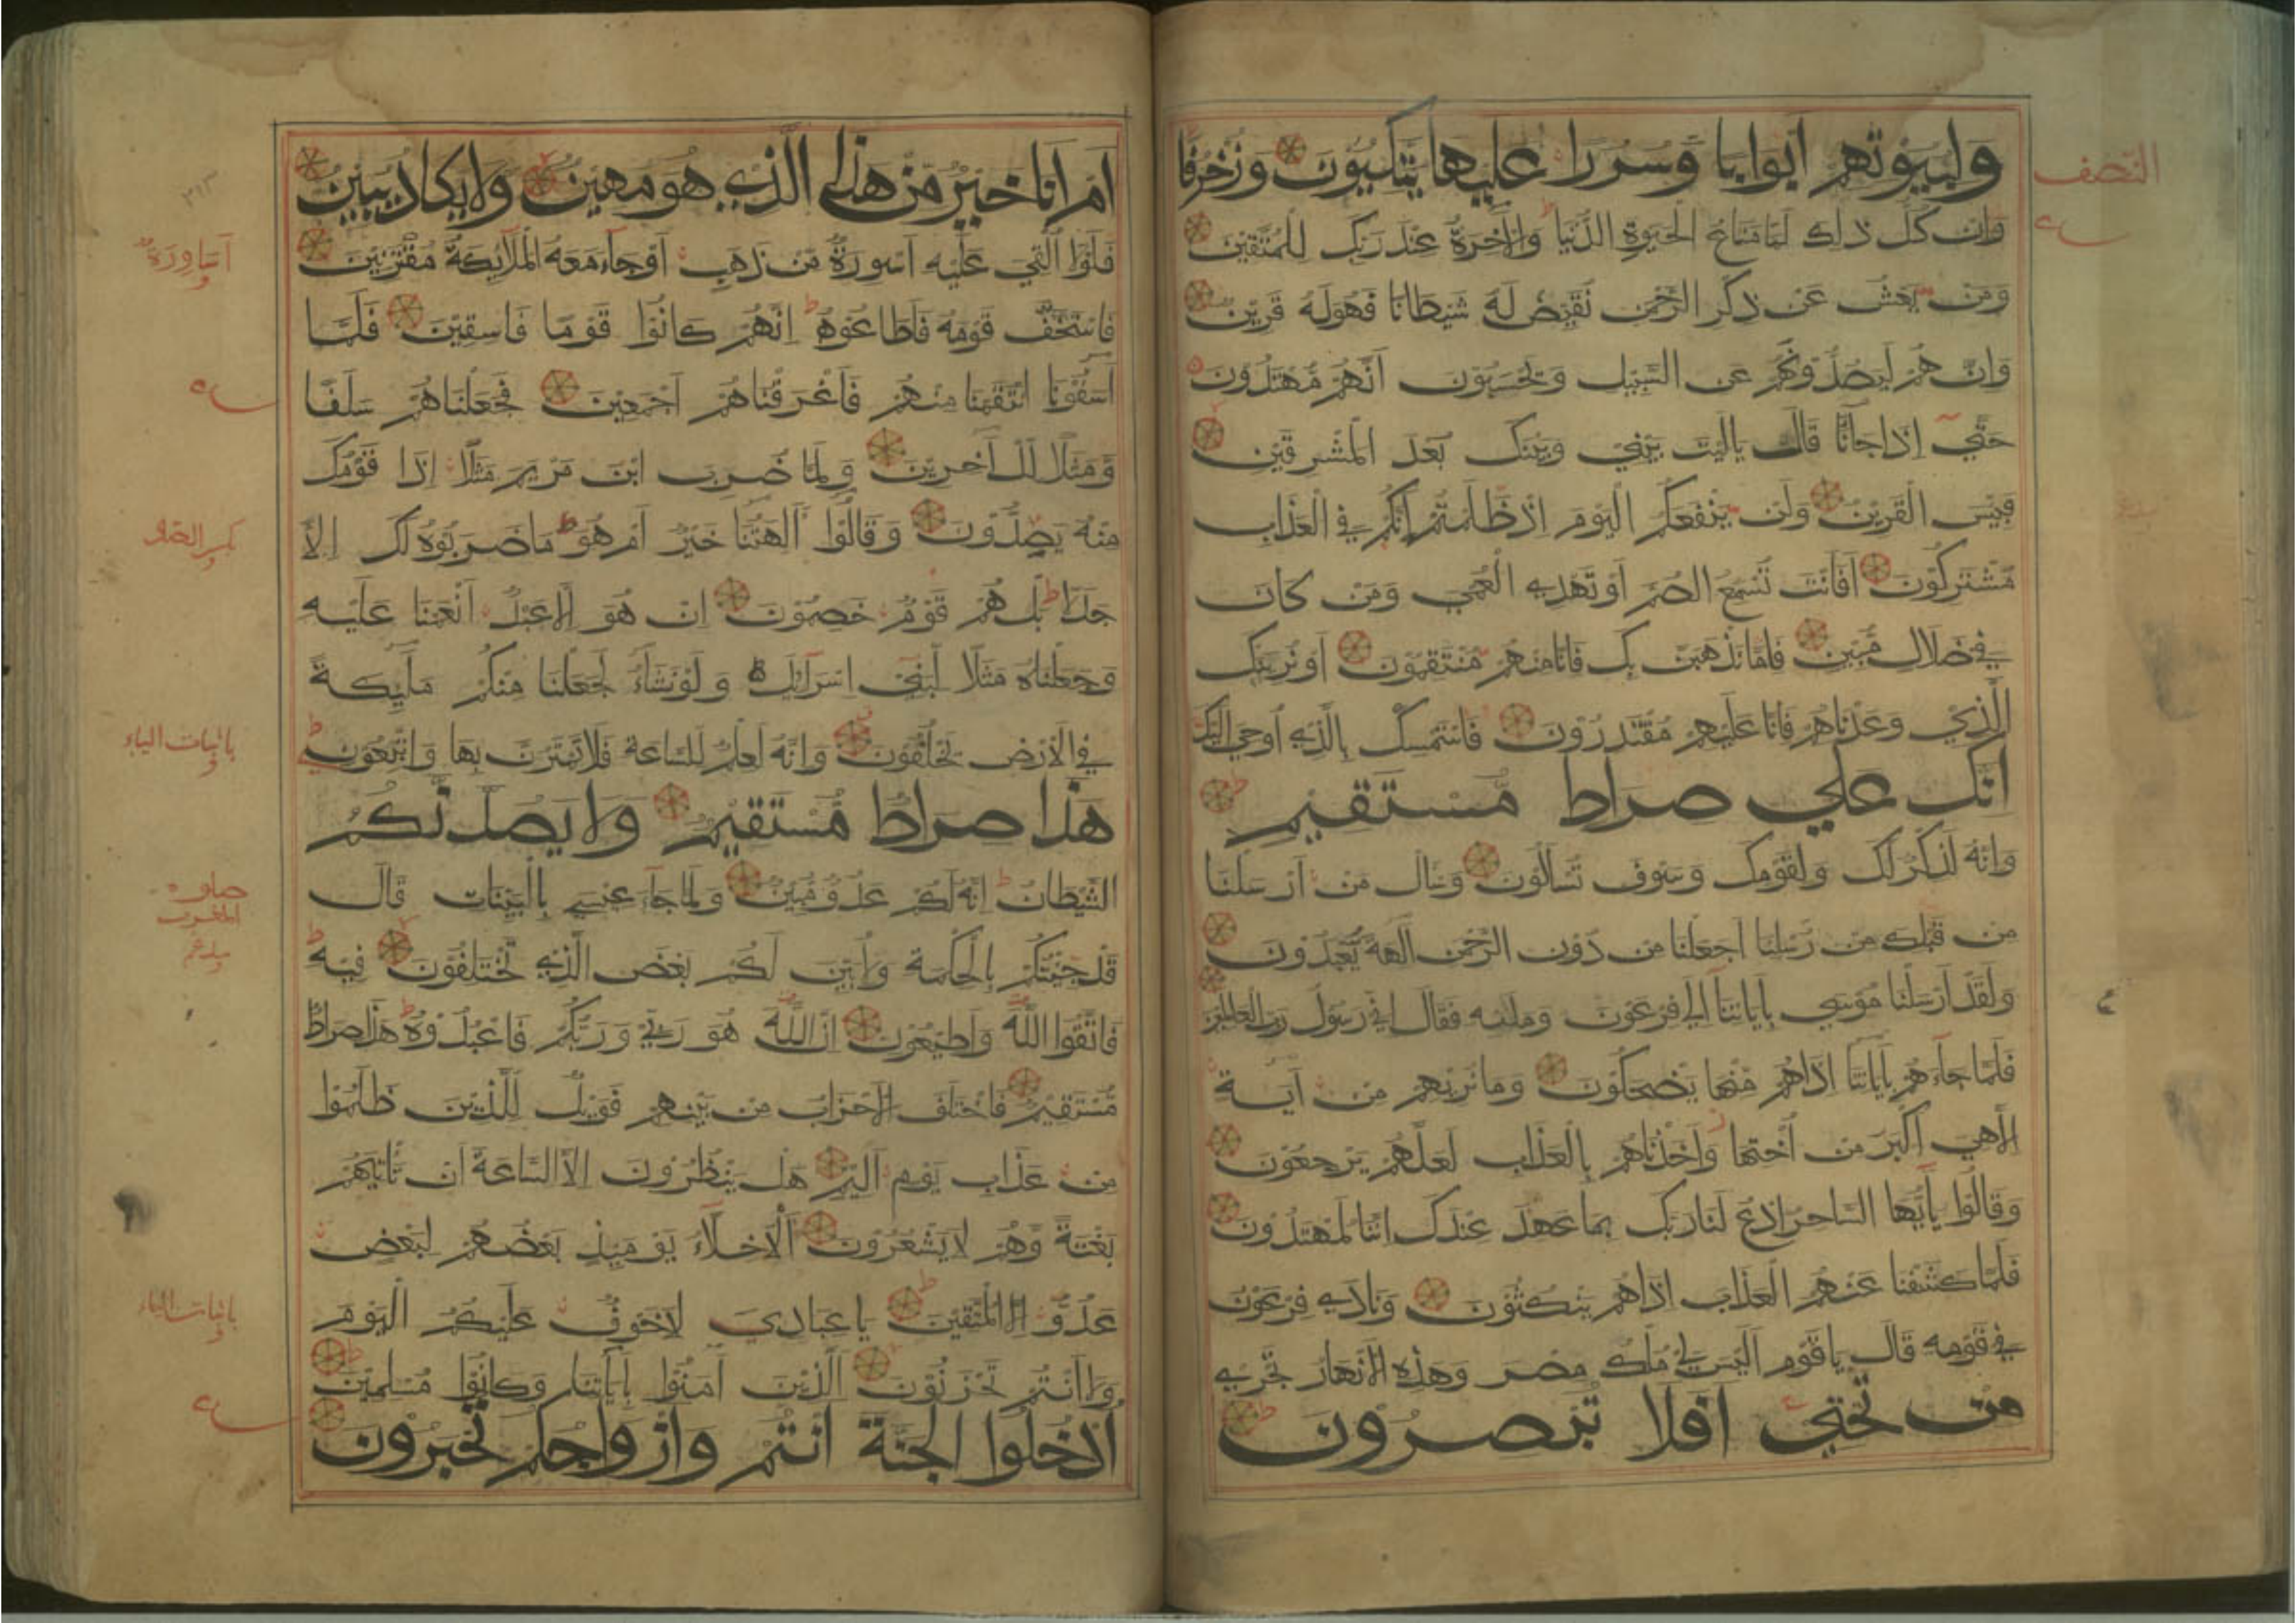 النصف
ولبيوتهم ابوابا وسررا عليها يتكئون وزخرفا
وان كل ذلك لما متاع الحيوة الدنيا والآخرة عند ربك للمتقين
ومن يعش عن ذكر الرحمن نقيض له شيطانا فهو له قرين
وانهم ليصدونهم عن السبيل ويحسبون انهم مهتدون
حتي اذا جاءنا قال ياليت بيني وبينك بعد المشرقين
فبئس القرين ولن ينفعكم اليوم اذ ظلمتم انكم في العذاب
مشتركون افانت تسمع الصم او تهدي العمي ومن كان
في ضلال مبين فاما نذهبن بك فانا منهم منتقمون او نرينك
الذي وعدناهم فانا عليهم مقتدرون فاستمسك بالذي اوحي اليك
انك علي صراط مستقيم
وانه لذكر لك ولقومك وسوف تسألون وسال من ارسلنا
من قبلك من رسلنا اجعلنا من دون الرحمن آلهة يعبدون
ولقد ارسلنا موسي بآياتنا الي فرعون وملئه فقال اني رسول رب العالمين
فلما جاءهم بآياتنا اذاهم منها يضحكون وما نريهم من آية
الا هي اكبر من اختها واخذناهم بالعذاب لعلهم يرجعون
وقالوا يأيها الساحر ادع لنا ربك بما عهد عندك اننا لمهتدون
فلما كشفنا عنهم العذاب اذاهم ينكثون ونادي فرعون
في قومه قال ياقوم اليس لي ملك مصر وهذه الانهار تجري
من تحتي افلا تبصرون
ام انا خير من هذا الذي هو مهين ولا يكاد يبين
فلولا القي عليه اسورة من ذهب او جاء معه الملائكة مقترنين
فاستخف قومه فاطاعوه انهم كانوا قوما فاسقين فلما
آسفونا انتقمنا منهم فاغرقناهم اجمعين فجعلناهم سلفا
ومثلا للآخرين ولما ضرب ابن مريم مثلا اذا قومك
منه يصدون وقالوا ءآلهتنا خير ام هو ما ضربوه لك الا
جدلا بل هم قوم خصمون ان هو الا عبد انعمنا عليه
وجعلناه مثلا لبني اسرائيل ولو نشاء لجعلنا منكم ملئكة
في الارض يخلفون وانه لعلم للساعة فلا تمترن بها واتبعون
هذا صراط مستقيم ولا يصدنكم
الشيطان انه لكم عدو مبين ولما جاء عيسي بالبينات قال
قد جئتكم بالحكمة ولابين لكم بعض الذي تختلفون فيه
فاتقوا الله واطيعون ان الله هو ربي وربكم فاعبدوه هذا صراط
مستقيم فاختلف الاحزاب من بينهم فويل للذين ظلموا
من عذاب يوم اليم هل ينظرون الا الساعة ان تأتيهم
بغتة وهم لا يشعرون الاخلاء يومئذ بعضهم لبعض
عدو الا المتقين يا عبادي لا خوف عليكم اليوم
ولا انتم تحزنون الذين آمنوا بآياتنا وكانوا مسلمين
ادخلوا الجنة انتم وازواجكم تحبرون
اساورة
باثبات الياء
باثبات الياء